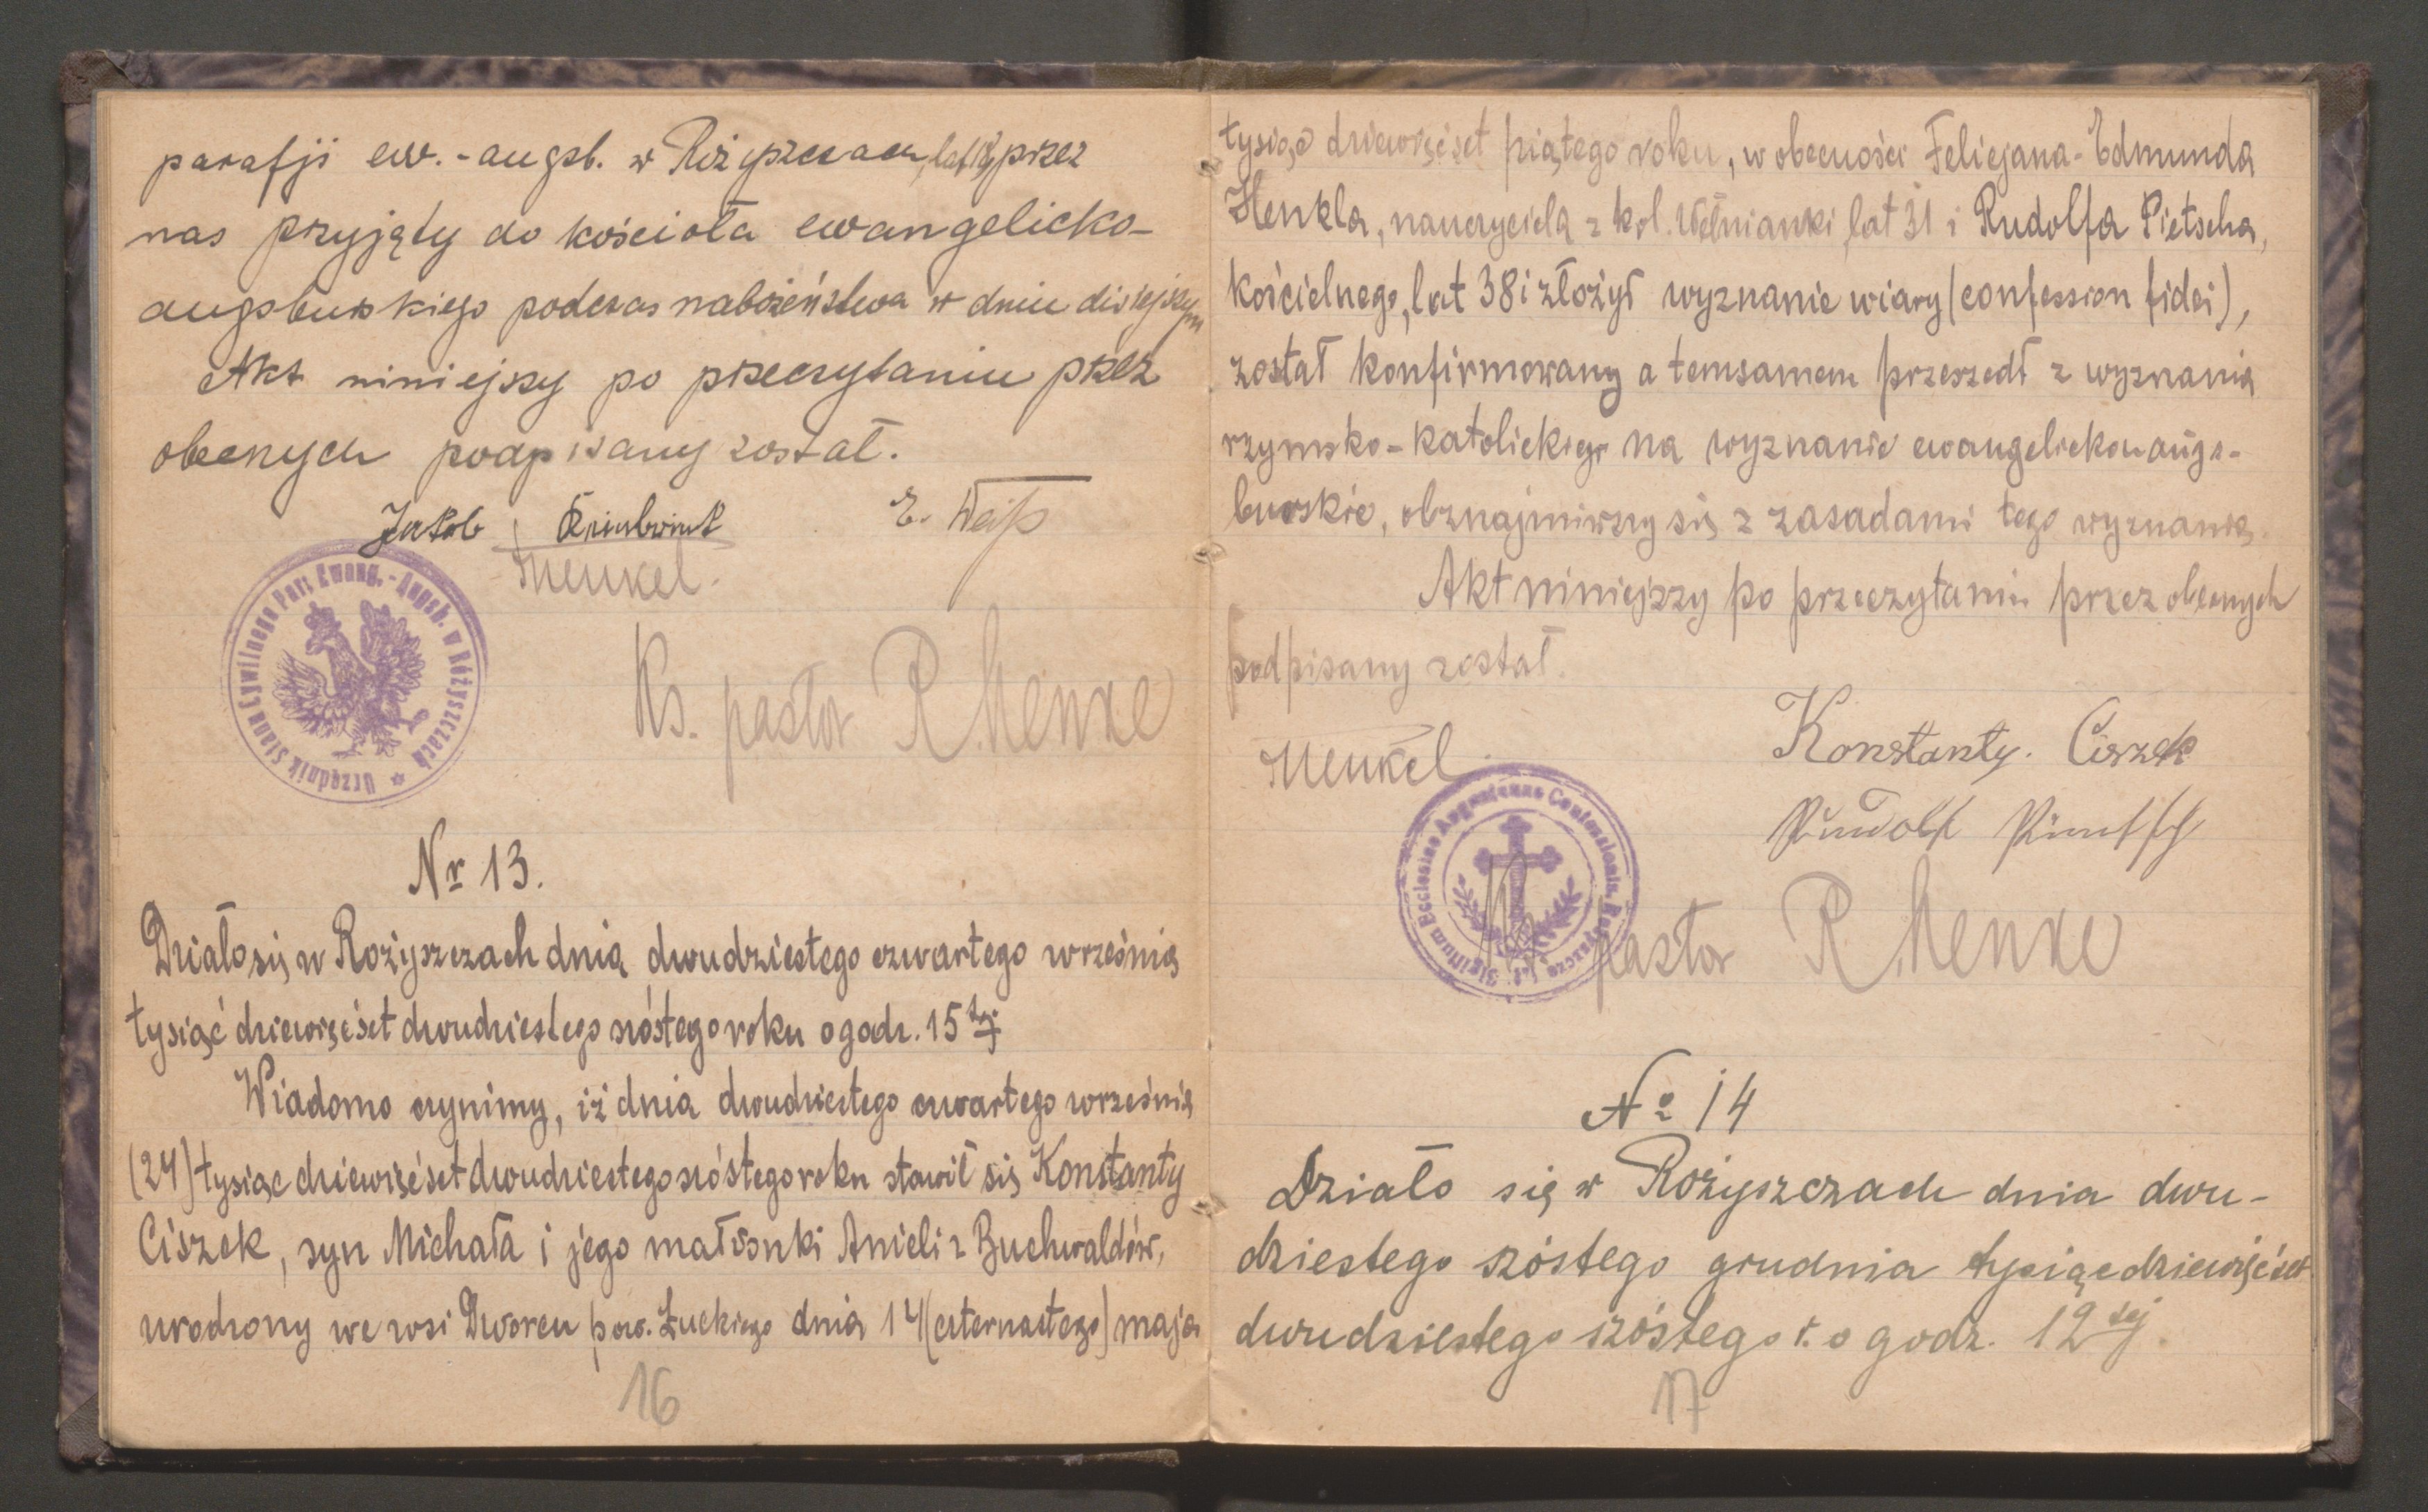 parafji ew.-augsb. w Rożyszczach, lat 18, przez
nas przyjęty do kościoła ewangelicko-
augsburskiego podczas nabożeństwa w dniu dzisiejszym
Akt niniejszy po przeczytaniu przez
obecnych podpisany został.
Jakob
E. Weiß
Henkel.
Urzędnik Stanu Cywilnego Par. Ewang.-Augsb. w Rożyszczach
Ks. pastor R. Henke
Nr 13.
Działo się w Rożyszczach dnia dwudziestego czwartego września
tysiąć dziewięćset dwudziestego szóstego roku o godz. 15tej.
Wiadomo czynimy, iż dnia dwudziestego czwartego września
(24) tysiąc dziewięćset dwudziestego szóstego roku stawił się Konstanty
Ciszek, syn Michała i jego małżonki Anieli z Buchwaldów,
urodzony we wsi Dworcu pow. Łuckiego dnia 14 (czternastego) maja
16
tysiąc dziewięćset piątego roku, w obecności Felicjana-Edmunda
Henkla, nauczyciela z kol. Wełnianki, lat 31 i Rudolfa Pietscha,
kościelnego, lat 38 i złożył wyznanie wiary (confession fidei),
został konfirmowany a temsamem przeszedł z wyznania
rzymsko-katolickiego na wyznanie ewangelicko-augs-
burskie, obznajmiwszy się z zasadami tego wyznania.
Akt niniejszy po przeczytaniu przez obecnych
podpisany został.
Henkel.
Konstanty. Ciszek
Rudolf Pietsch
Sigillum Ecclesiae Augustanae Confessionis, Rożyszcze
Ks. pastor R. Henke
No 14
Działo się w Rożyszczach dnia dwu-
dziestego szóstego grudnia tysiąc dziewięćset
dwudziestego szóstego r. o godz. 12tej.
17